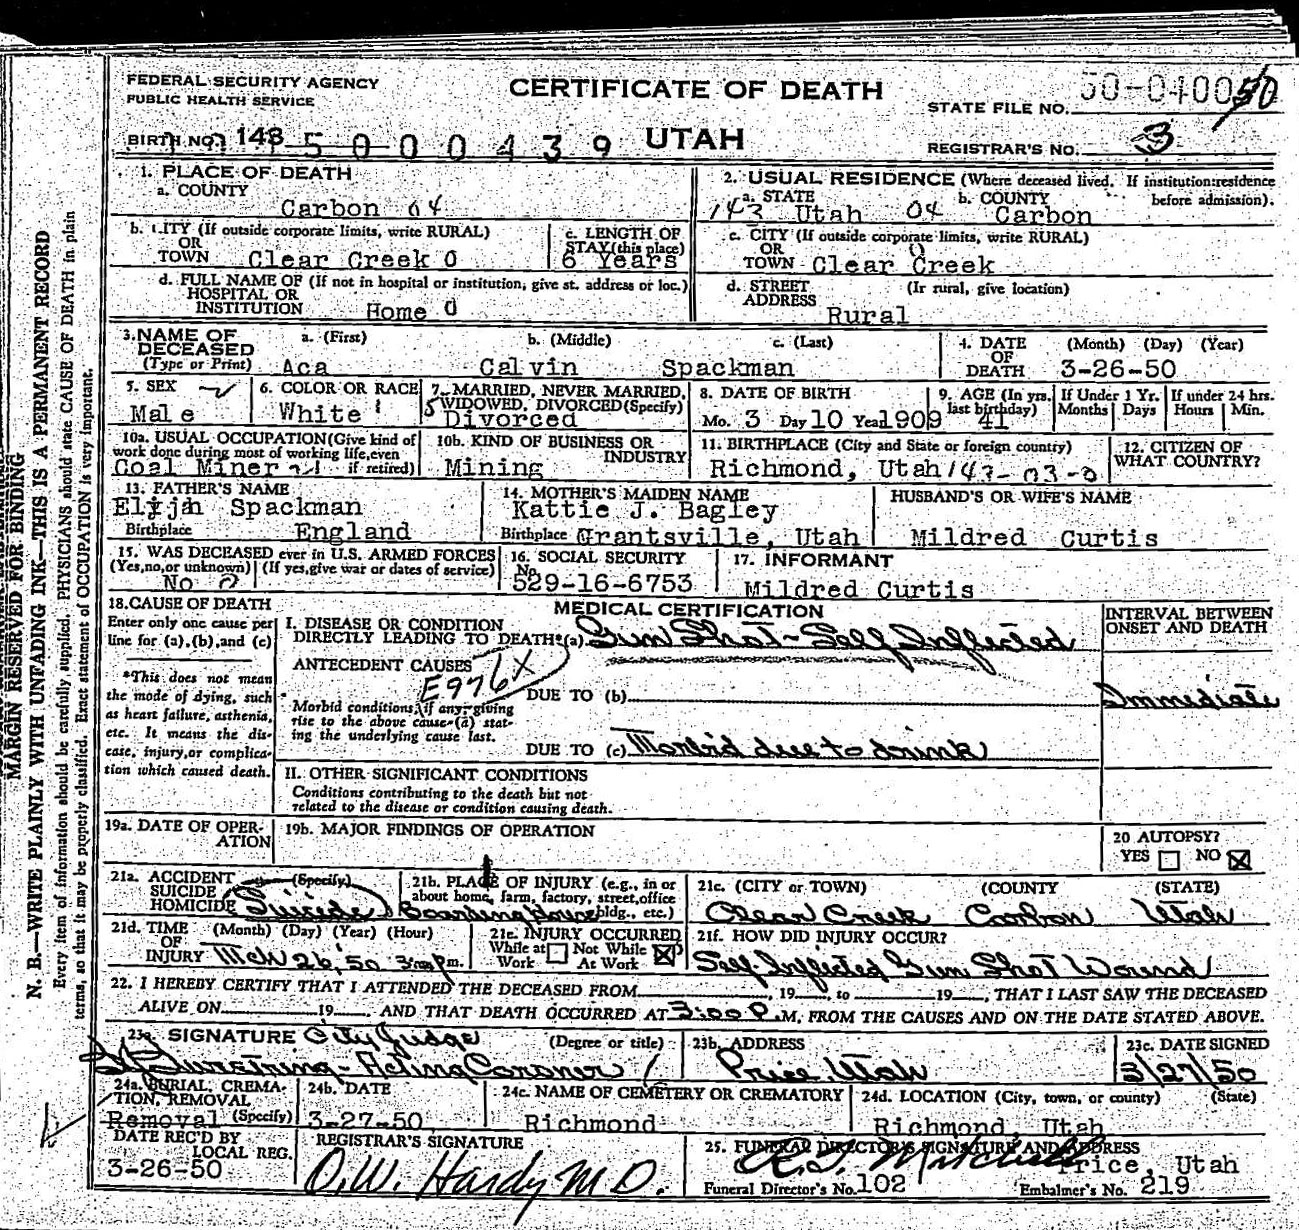 FEDERAL SECURITY AGENCY
PUBLIC HEALTH SERVICE
CERTIFICATE OF DEATH
UTAH
STATE FILE NO. 50-040050
BIRTH NO. 143 5000439
REGISTRAR'S NO. 3
1. PLACE OF DEATH
a. COUNTY
Carbon 04
2. USUAL RESIDENCE (Where deceased lived. If institution:residence before admission).
a. STATE b. COUNTY
143 Utah 04 Carbon
b. CITY (If outside corporate limits, write RURAL)
OR
TOWN Clear Creek 0
c. LENGTH OF
STAY (this place)
6 Years
c. CITY (If outside corporate limits, write RURAL)
OR 0
TOWN Clear Creek
d. FULL NAME OF (If not in hospital or institution, give st. address or loc.)
HOSPITAL OR
INSTITUTION Home 0
d. STREET (If rural, give location)
ADDRESS
Rural
3. NAME OF DECEASED
(Type or Print)
a. (First) b. (Middle) c. (Last)
Aca Calvin Spackman
4. DATE OF DEATH (Month) (Day) (Year)
3-26-50
5. SEX
Male
6. COLOR OR RACE
White
7. MARRIED, NEVER MARRIED,
WIDOWED, DIVORCED (Specify)
5 Divorced
8. DATE OF BIRTH
Mo. 3 Day 10 Year 1909
9. AGE (In yrs. last birthday)
41
If Under 1 Yr. Months Days
If under 24 hrs. Hours Min.
10a. USUAL OCCUPATION (Give kind of
work done during most of working life, even
if retired)
Coal Miner
10b. KIND OF BUSINESS OR
INDUSTRY
Mining
11. BIRTHPLACE (City and State or foreign country)
Richmond, Utah 143-03-0
12. CITIZEN OF
WHAT COUNTRY?
13. FATHER'S NAME
Elijah Spackman
Birthplace England
14. MOTHER'S MAIDEN NAME
Kattie J. Bagley
Birthplace Grantsville, Utah
HUSBAND'S OR WIFE'S NAME
Mildred Curtis
15. WAS DECEASED ever in U.S. ARMED FORCES
(Yes, no, or unknown) (If yes, give war or dates of service)
No 0
16. SOCIAL SECURITY
No.
529-16-6753
17. INFORMANT
Mildred Curtis
18. CAUSE OF DEATH
Enter only one cause per
line for (a), (b), and (c)
*This does not mean
the mode of dying, such
as heart failure, asthenia,
etc. It means the dis-
ease, injury, or complica-
tion which caused death.
MEDICAL CERTIFICATION
I. DISEASE OR CONDITION
DIRECTLY LEADING TO DEATH* (a) Gun Shot - Self Inflicted
ANTECEDENT CAUSES
E976X
Morbid conditions, if any, giving
rise to the above cause (a) stat-
ing the underlying cause last.
DUE TO (b)
DUE TO (c) Morbid due to drink
INTERVAL BETWEEN
ONSET AND DEATH
Immediate
II. OTHER SIGNIFICANT CONDITIONS
Conditions contributing to the death but not
related to the disease or condition causing death.
19a. DATE OF OPER-
ATION
19b. MAJOR FINDINGS OF OPERATION
20 AUTOPSY?
YES NO
21a. ACCIDENT (Specify)
SUICIDE
HOMICIDE Suicide
21b. PLACE OF INJURY (e.g., in or
about home, farm, factory, street, office
bldg., etc.)
Boarding House
21c. (CITY or TOWN) (COUNTY (STATE)
Clear Creek Carbon Utah
21d. TIME (Month) (Day) (Year) (Hour)
OF
INJURY Mch 26, 50 3:00 Pm.
21e. INJURY OCCURRED
While at Work Not While At Work
21f. HOW DID INJURY OCCUR?
Self-Inflicted Gun Shot Wound
22. I HEREBY CERTIFY THAT I ATTENDED THE DECEASED FROM , 19 , to 19 , THAT I LAST SAW THE DECEASED
ALIVE ON 19 , AND THAT DEATH OCCURRED AT 3:00 P.M, FROM THE CAUSES AND ON THE DATE STATED ABOVE.
23a. SIGNATURE City Judge (Degree or title)
Acting Coroner
23b. ADDRESS
Price Utah
23c. DATE SIGNED
3/27/50
24a. BURIAL, CREMA-
TION, REMOVAL
Removal (Specify)
24b. DATE
3-27-50
24c. NAME OF CEMETERY OR CREMATORY
Richmond
24d. LOCATION (City, town, or county) (State)
Richmond, Utah
DATE REC'D BY
LOCAL REG.
3-26-50
REGISTRAR'S SIGNATURE
O.W. Hardy M D.
25. FUNERAL DIRECTOR'S SIGNATURE AND ADDRESS
Mitchell Price, Utah
Funeral Director's No. 102 Embalmer's No. 219
MARGIN RESERVED FOR BINDING
N. B.—WRITE PLAINLY WITH UNFADING INK—THIS IS A PERMANENT RECORD
Every item of information should be carefully supplied. PHYSICIANS should state CAUSE OF DEATH in plain
terms, so that it may be properly classified. Exact statement of OCCUPATION is very important.